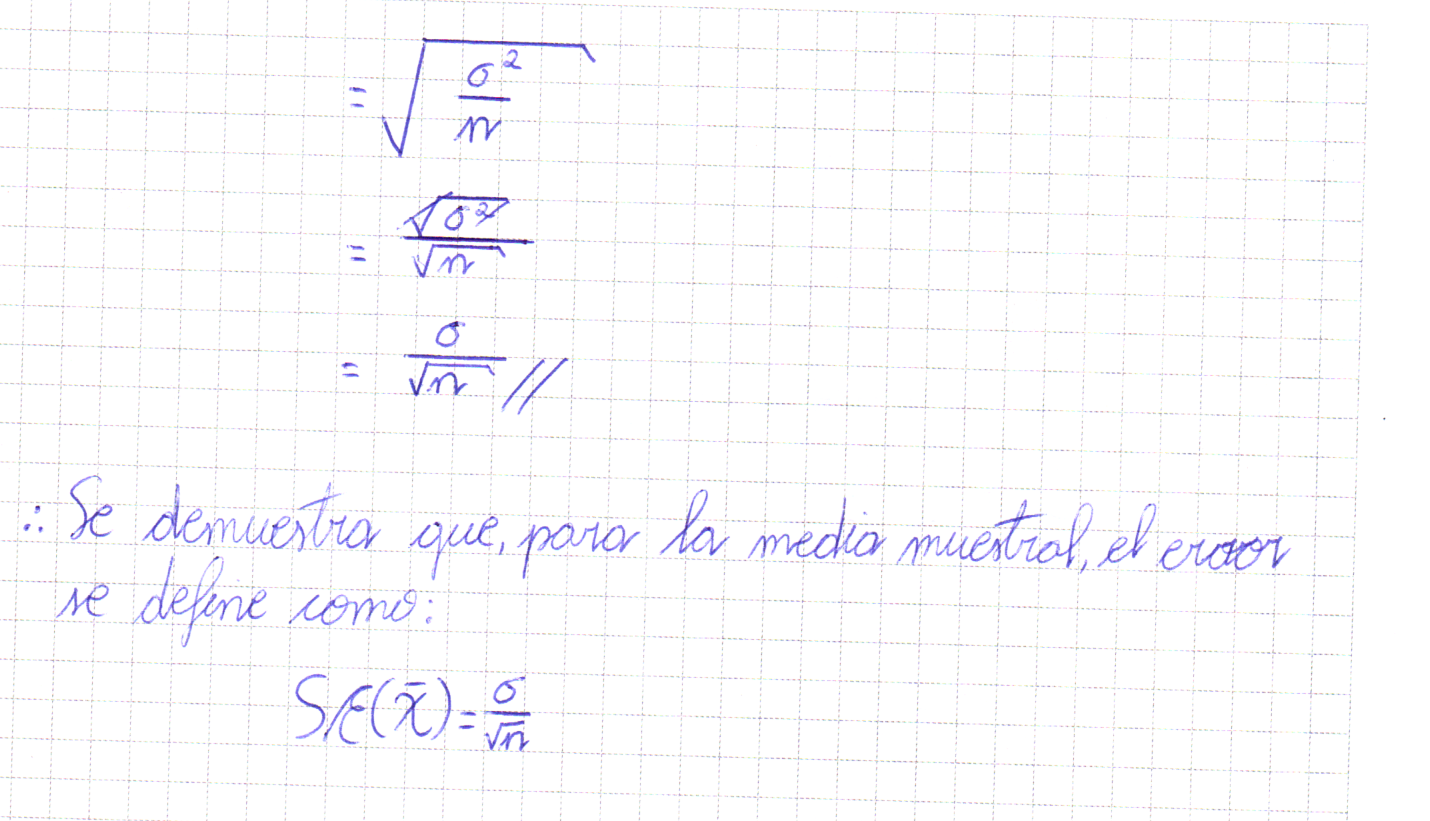 = √(σ²/n)
= √σ²/√n
= σ/√n //
∴ Se demuestra que, para la media muestral, el error
se define como:
SE(x̄) = σ/√n